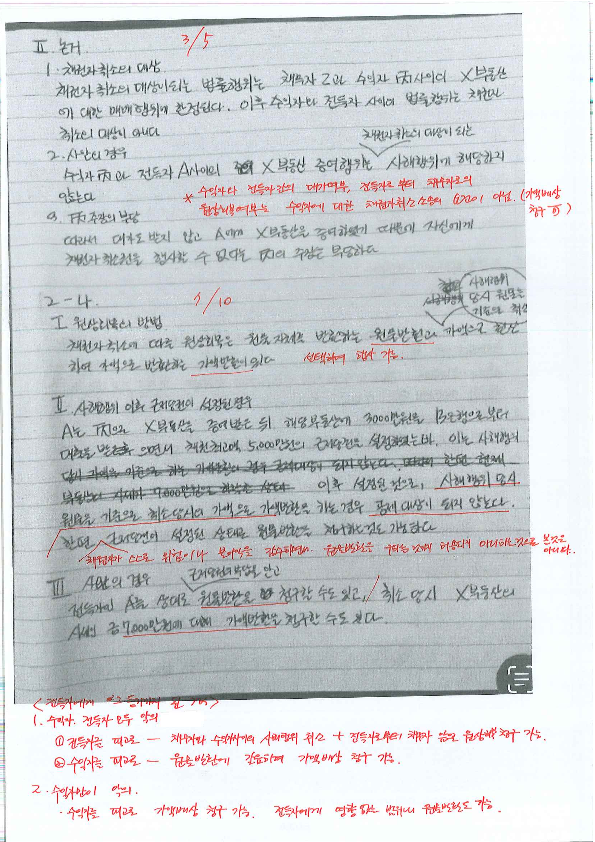 II. 논거 3/5
1. 채권자취소의 대상
채권자취소의 대상이 되는 법률행위는 채무자 乙과 수익자 丙사이의 X부동산
에 대한 매매행위에 한정된다. 이후 수익자와 전득자 사이의 법률행위는 채권자
취소의 대상이 아니다
2. 사안의 경우 채권자취소의 대상이 되는
수익자 丙과 전득자 A사이의 X부동산 증여행위는 사해행위에 해당하지
않는다
* 수익자와 전득자 간의 대가여부, 전득자로부터 채무자로의
원상회복여부는 수익자에 대한 채권자취소소송의 요건이 아님. (가액배상
청구 可)
3. 丙 주장의 부당
따라서 대가도 받지 않고 A에게 X부동산을 증여하였기 때문에 자신에게
채권자취소권을 행사할 수 없다는 丙의 주장은 부당하다
2-나 9/10
사해행위
당시 원물을
기준으로 취소
I 원상회복의 방법
채권자취소에 따른 원상회복은 원물 자체로 반환하는 원물반환과 가액으로 환산
하여 가액으로 반환하는 가액반환이 있다 선택하여 행사 가능.
II 사해행위 이후 근저당권이 설정된 경우
A는 丙으로 X부동산을 증여받은 뒤 해당부동산에 3000만원을 B은행으로부터
대출을 받으면서 채권최고액 5,000만원의 근저당권을 설정하였는바, 이는 사해행위
이후 설정된 것으로, 사해행위 당시
원물을 기준으로 취소당시의 가액으로 가액반환을 하는 경우 공제대상이 되지 않는다.
한편 근저당권이 설정된 상태로 원물반환을 청구하는것도 가능하다
채권자 스스로 위험이나 불이익을 감수하면서 원물반환을 구하는 것까지 허용되지 아니하는것으로 볼것은
아니다.
III 사안의 경우 근저당권의 부담을 안고
전득자인 A를 상대로 원물반환을 청구할 수도 있고, 취소 당시 X부동산의
A에게 금 7,000만원에 대해 가액반환을 청구할 수도 있다.
1. 수익자, 전득자 모두 악의
① 전득자를 피고로 — 채무자와 수익자사이의 사해행위 취소 + 전득자로부터 채무자 앞으로 원상회복 청구 가능.
② 수익자를 피고로 — 원물반환에 갈음하여 가액배상 청구 가능.
2. 수익자만이 악의.
· 수익자를 피고로 가액배상 청구 가능. 전득자에게 영향 없는 범위내 원물반환도 가능.